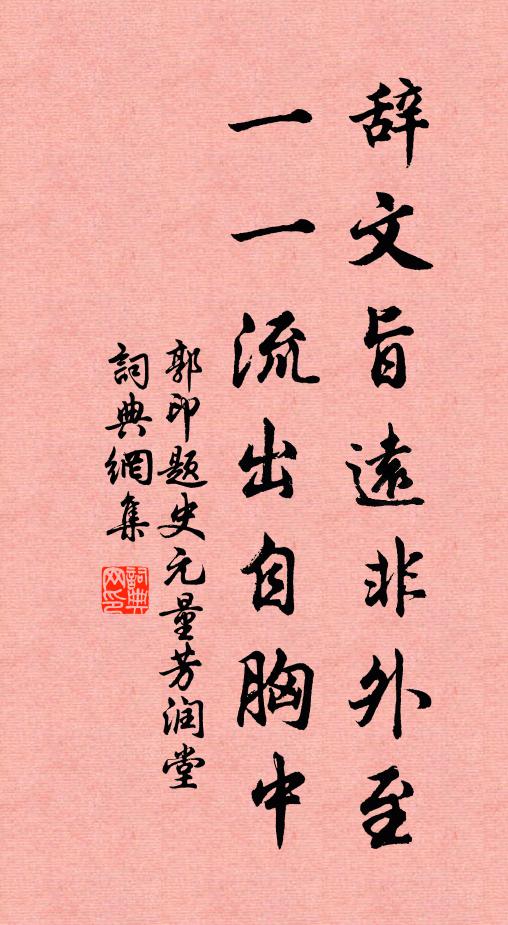 辞文旨遠非外至
一一流出自胸中
郭印題史元量芳润堂
詞典網集
詞典网印